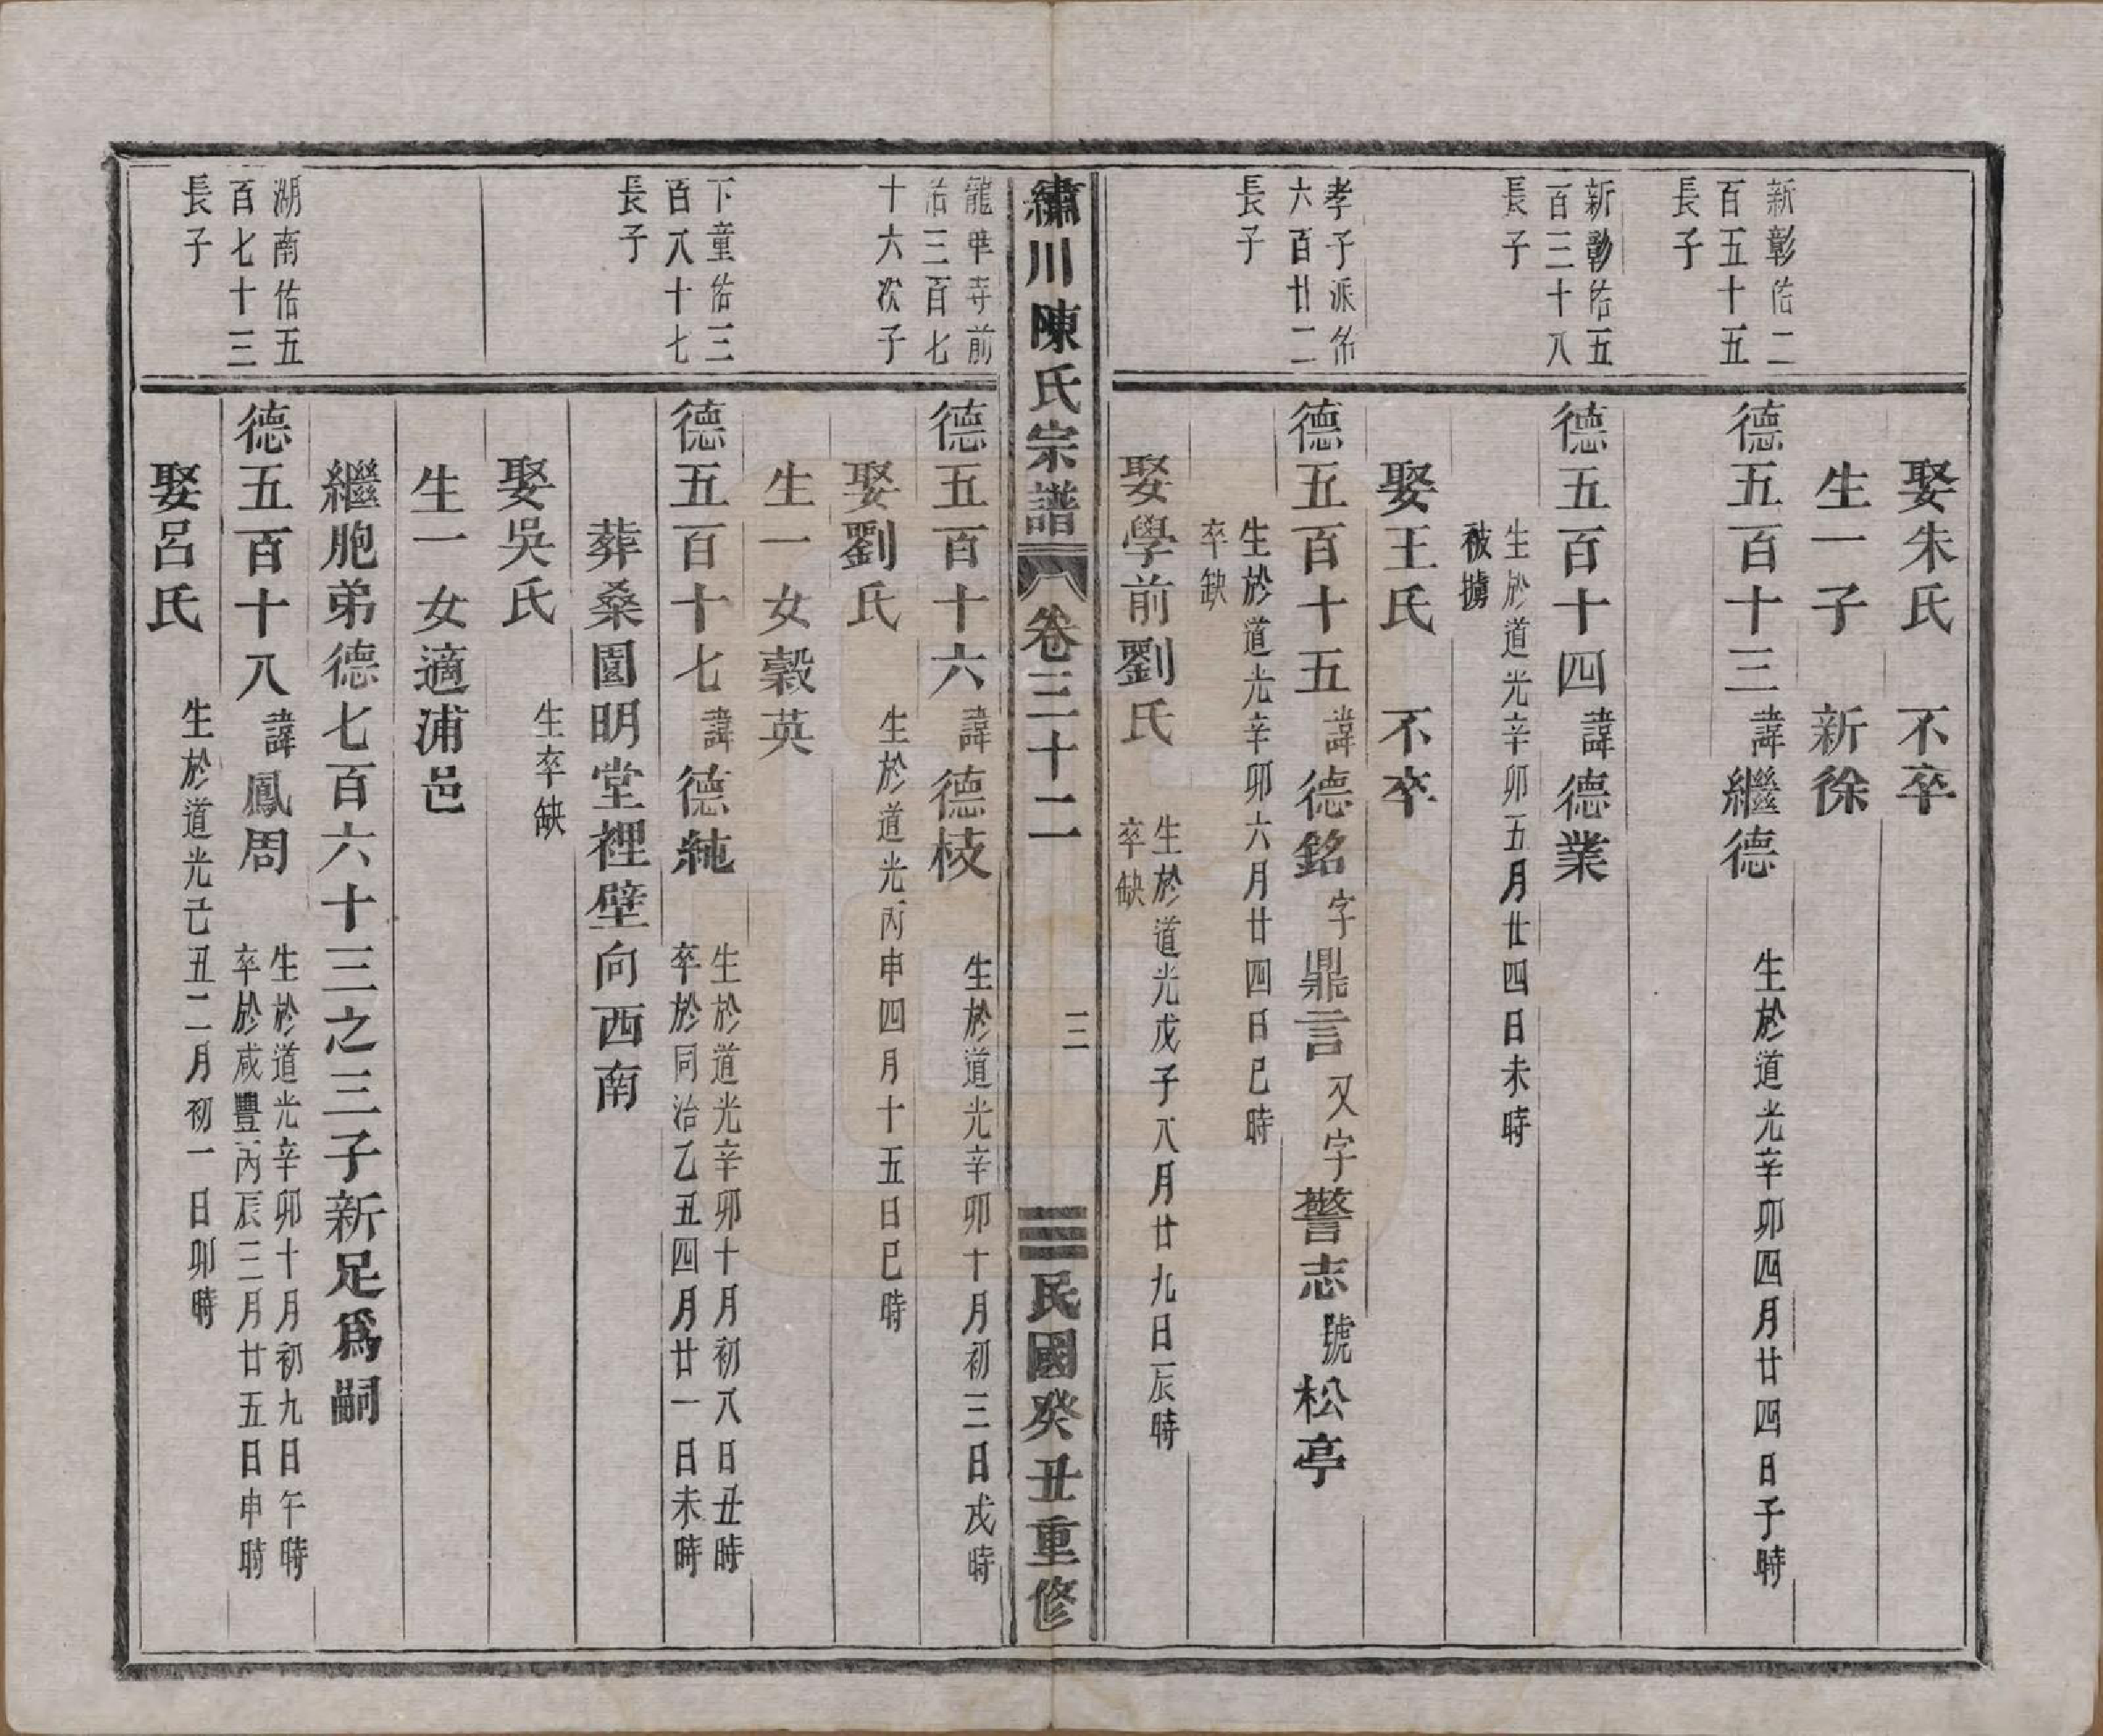 娶朱氏　不卒
生一子　新徐
新彰佑二
百五十五
長子
德五百十三諱繼德　生於道光辛卯四月廿四日子時
新彰佑五
百三十八
長子
德五百十四諱德業
生於道光辛卯五月廿四日未時
被擄
娶王氏　不卒
孝子派佑
六百廿二
長子
德五百十五諱德銘字鼎言又字警志號松亭
生於道光辛卯六月廿四日巳時
卒缺
娶學前劉氏　生於道光戊子八月廿九日辰時
卒缺
繡川陳氏宗譜　卷三十二　三　民國癸丑重修
龍華寺前
佑三百七
十六次子
德五百十六諱德枝　生於道光辛卯十月初三日戌時
娶劉氏　生於道光丙申四月十五日巳時
生一女穀英
下童佑三
百八十七
長子
德五百十七諱德純　生於道光辛卯十月初八日丑時
卒於同治乙丑四月廿一日未時
葬桑園明堂裡壁向西南
娶吳氏　生卒缺
生一女適浦邑
繼胞弟德七百六十三之三子新足爲嗣
湖南佑五
百七十三
長子
德五百十八諱鳳周　生於道光辛卯十月初九日午時
卒於咸豐丙辰三月廿五日申時
娶呂氏　生於道光己丑二月初一日卯時